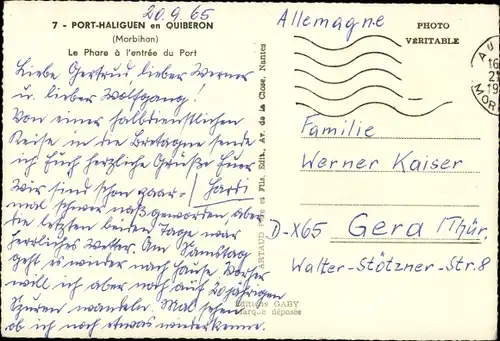 20.9.65
7 - PORT-HALIGUEN en QUIBERON
(Morbihan)
Le Phare à l'entrée du Port
Liebe Gertrud, lieber Werner
u. lieber Wolfgang!
Von einer halbdienstlichen
Reise in die Bretagne sende
ich Euch herzliche Grüße Euer
Hardi
Wir sind schon paar-
mal schwer naß geworden aber
die letzten beiden Tage war
herrliches Wetter. Am Samstag
geht es wieder nach Hause. Vorher
will ich aber noch auf 20jährigen
Spuren wandeln. Mal sehen
ob ich noch etwas wiederkenne.
ARTAUD Père et Fils, Edit., Av. de la Close, Nantes
Editions GABY
Marque déposée
Allemagne
PHOTO
VÉRITABLE
16
21
19
MOR
Familie
Werner Kaiser
D-X65 Gera/Thür.
Walter-Stötzner-Str. 8